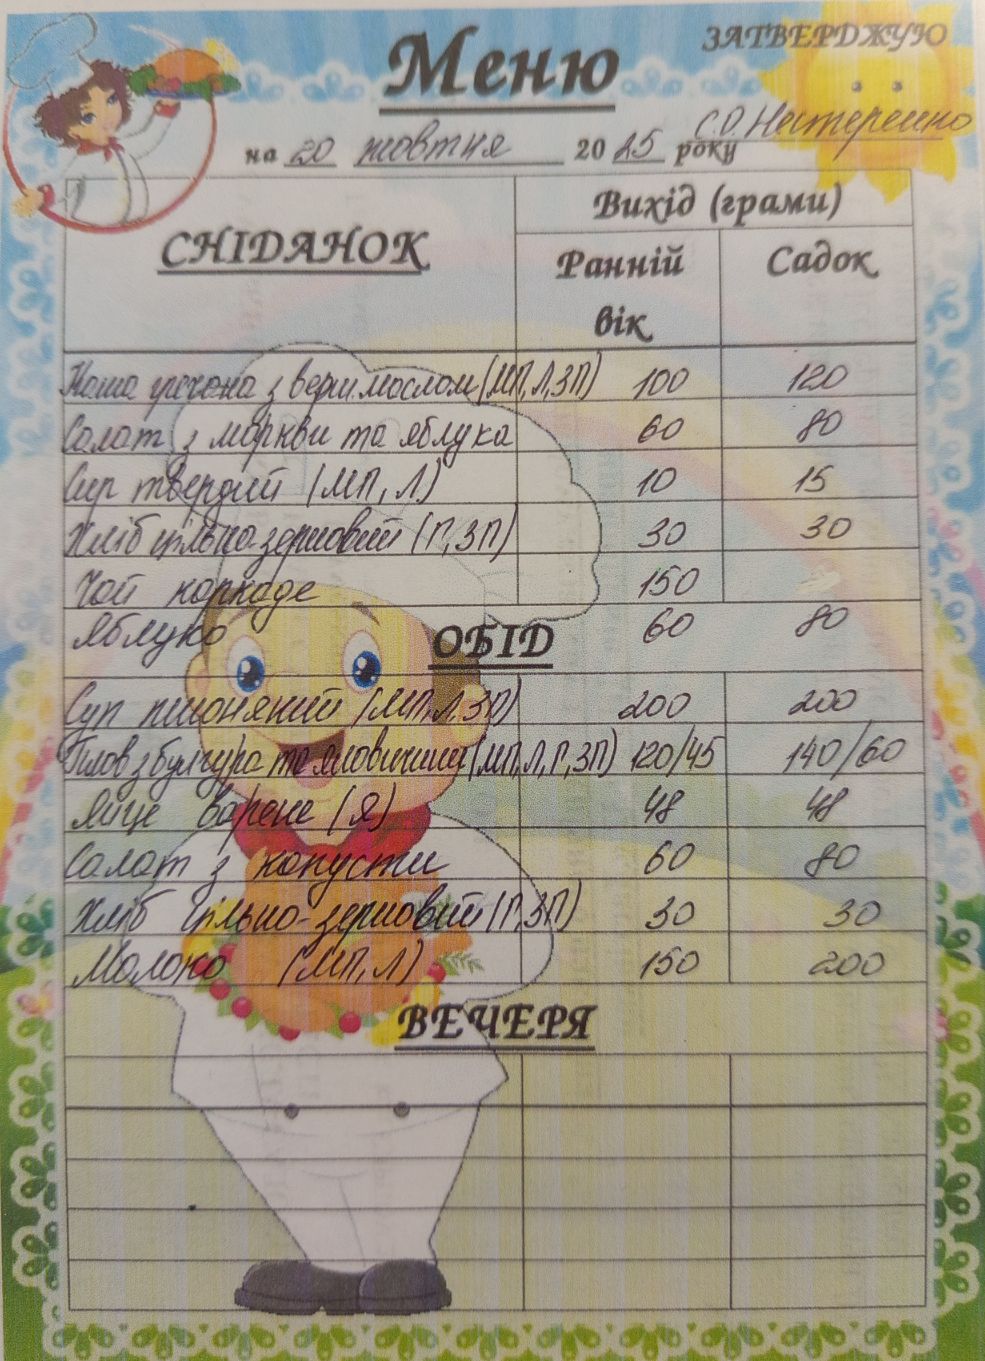 Меню
ЗАТВЕРДЖУЮ
С.О. Нестеренко
на 20 жовтня 2025 року
СНІДАНОК
Вихід (грами)
Ранній вік
Садок
Каша гречана з верш. маслом (МП, Л, ЗП) 100 120
Салат з моркви та яблука 60 80
Сир твердий (МП, Л) 10 15
Хліб цільно-зерновий (Г, ЗП) 30 30
Чай каркаде 150
Яблуко 60 80
ОБІД
Суп пшоняний (МП, Л, ЗП) 200 200
Плов з булгура та яловичини (МП, Л, Г, ЗП) 120/45 140/60
Яйце варене (Я) 48 48
Салат з капусти 60 80
Хліб цільно-зерновий (Г, ЗП) 30 30
Молоко (МП, Л) 150 200
ВЕЧЕРЯ